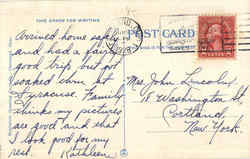 THIS SPACE FOR WRITING
POST CARD
Arrived home safely
and had a fairly
good trip but got
soaked thru at
Syracuse. Family
thinks my pictures
are good and that
I look good for my
rest. Kathleen
Mrs. John Lincoln
18 Washington St
Cortland,
New York.